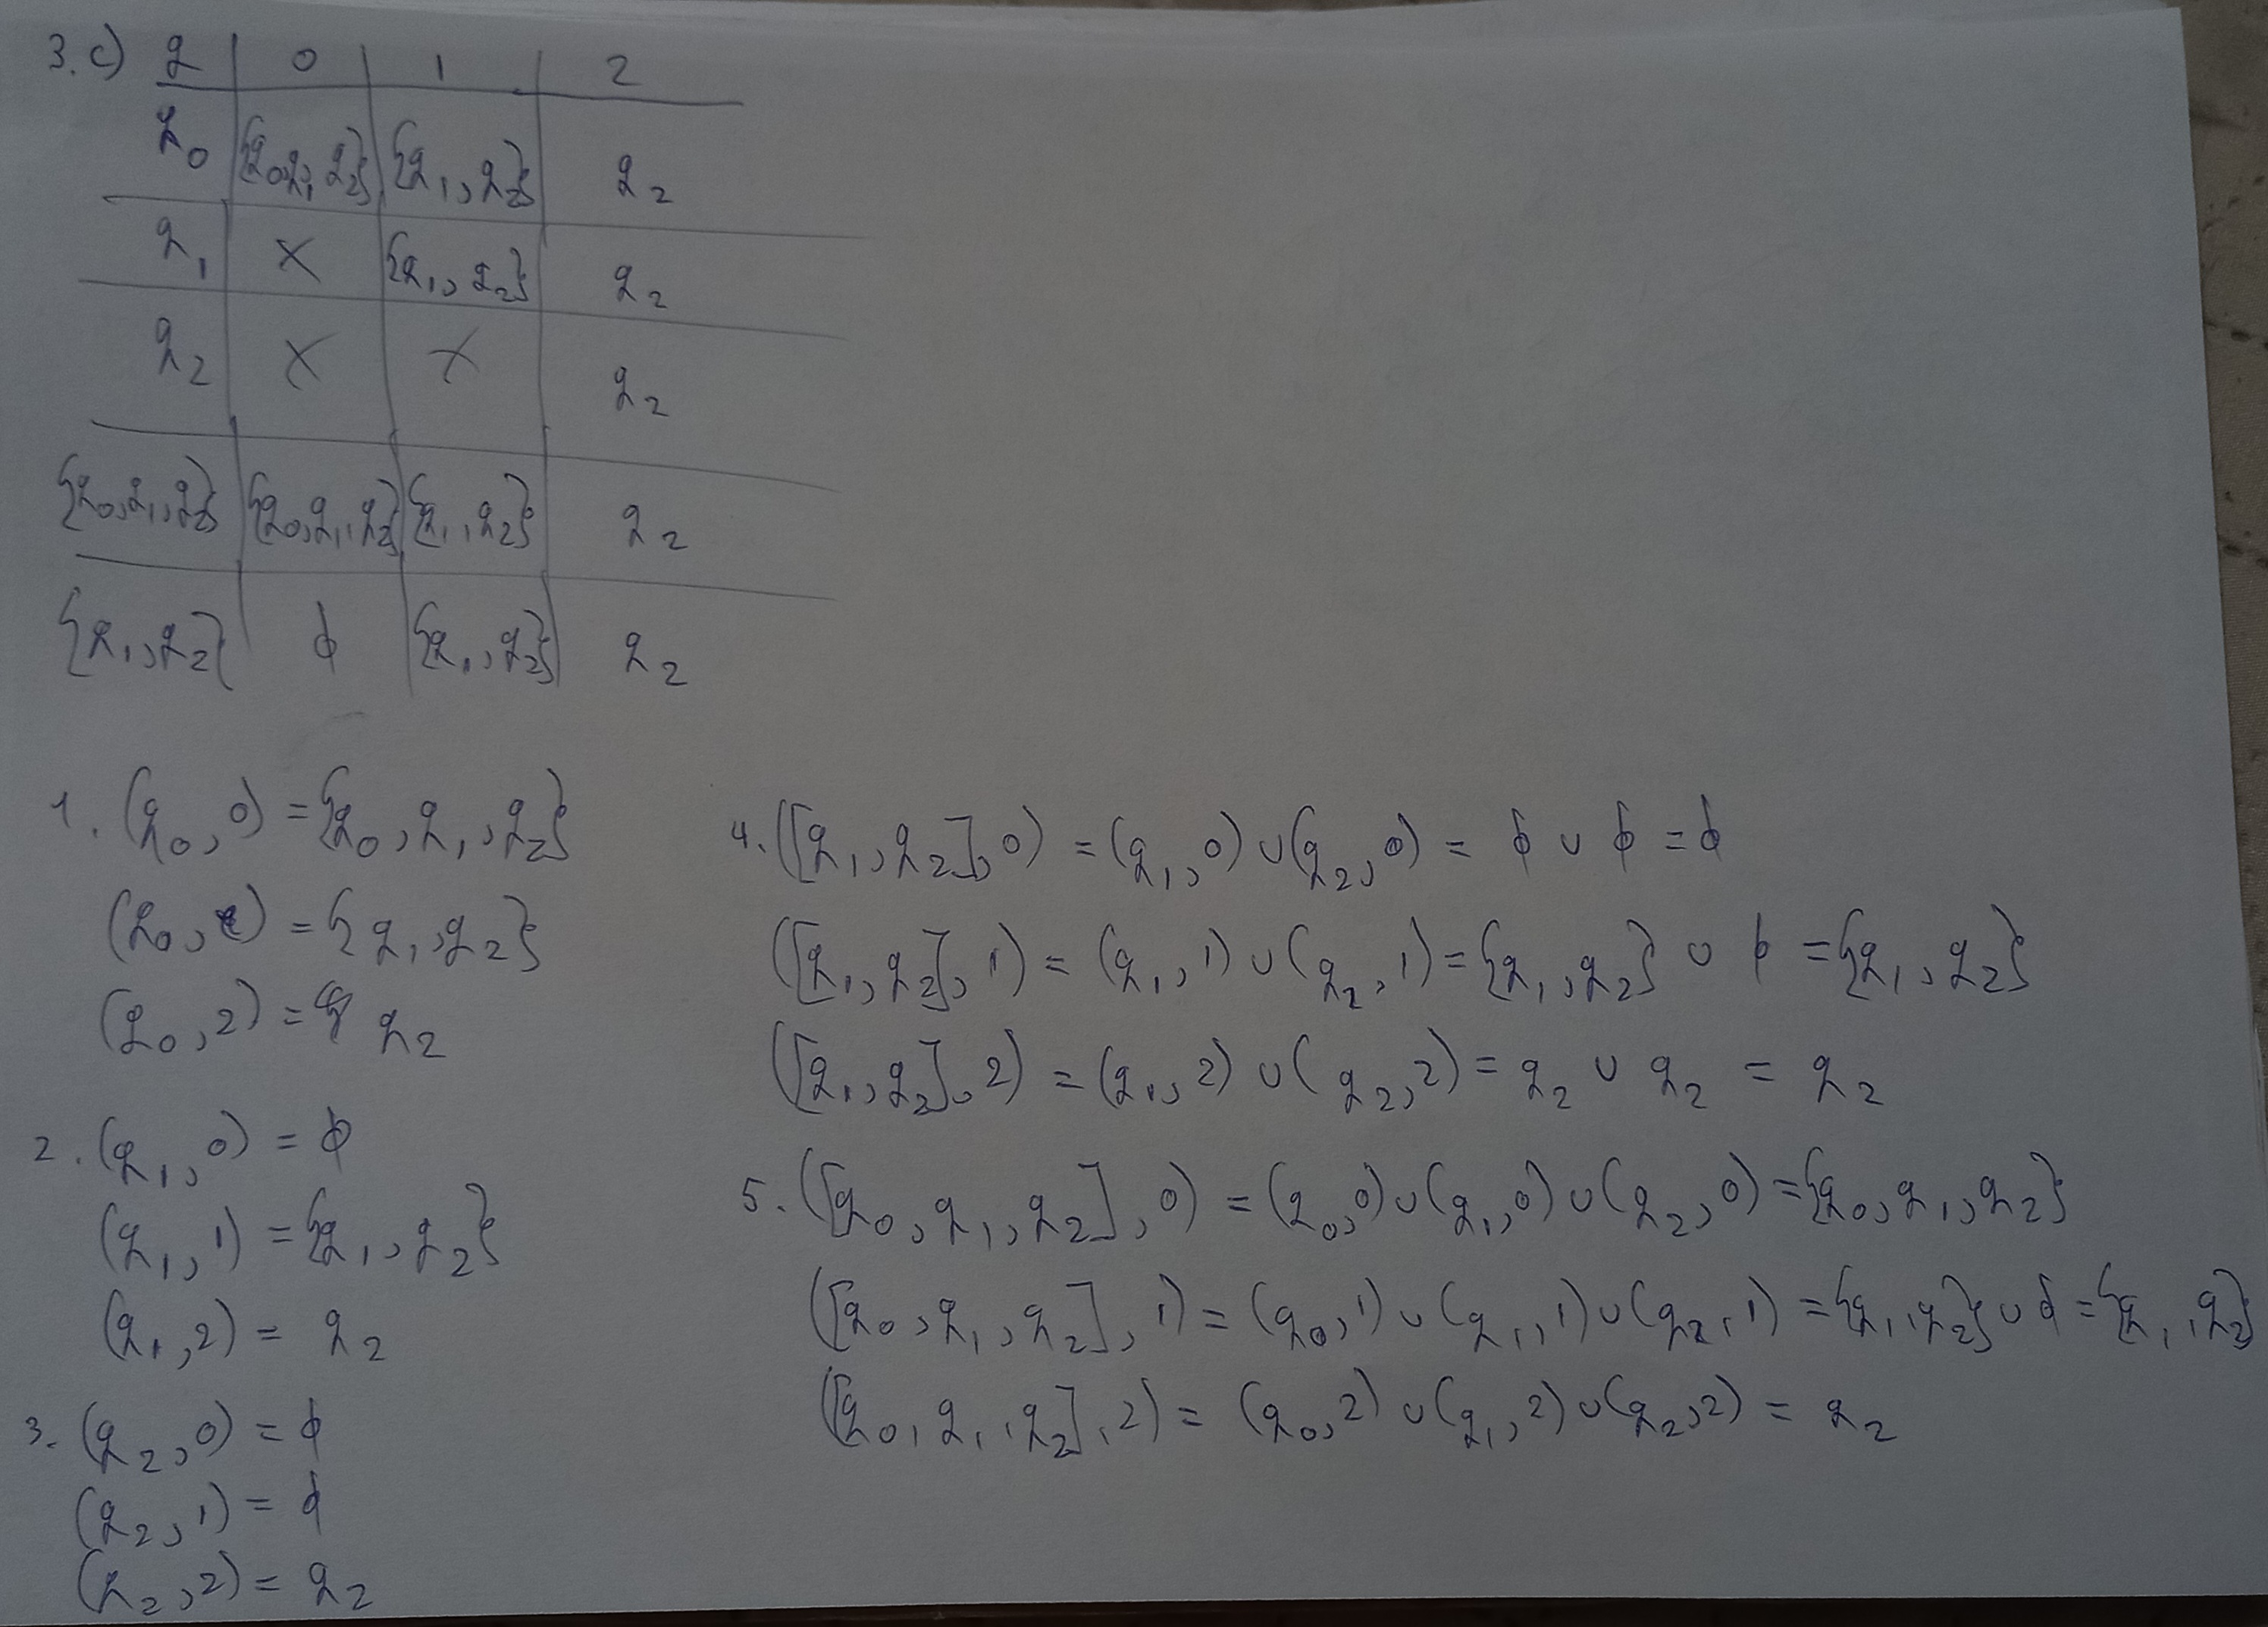 3. c) q 0 1 2
q0 {q0,q1,q2} {q1,q2} q2
q1 X {q1,q2} q2
q2 X X q2
{q0,q1,q2} {q0,q1,q2} {q1,q2} q2
{q1,q2} ϕ {q1,q2} q2
1. (q0,0) = {q0,q1,q2}
(q0, ) = {q1,q2}
(q0,2) = q2
2. (q1,0) = ϕ
(q1,1) = {q1,q2}
(q1,2) = q2
3. (q2,0) = ϕ
(q2,1) = ϕ
(q2,2) = q2
4. ([q1,q2],0) = (q1,0) ∪ (q2,0) = ϕ ∪ ϕ = ϕ
([q1,q2],1) = (q1,1) ∪ (q2,1) = {q1,q2} ∪ ϕ = {q1,q2}
([q1,q2],2) = (q1,2) ∪ (q2,2) = q2 ∪ q2 = q2
5. ([q0,q1,q2],0) = (q0,0) ∪ (q1,0) ∪ (q2,0) = {q0,q1,q2}
([q0,q1,q2],1) = (q0,1) ∪ (q1,1) ∪ (q2,1) = {q1,q2} ∪ ϕ = {q1,q2}
([q0,q1,q2],2) = (q0,2) ∪ (q1,2) ∪ (q2,2) = q2